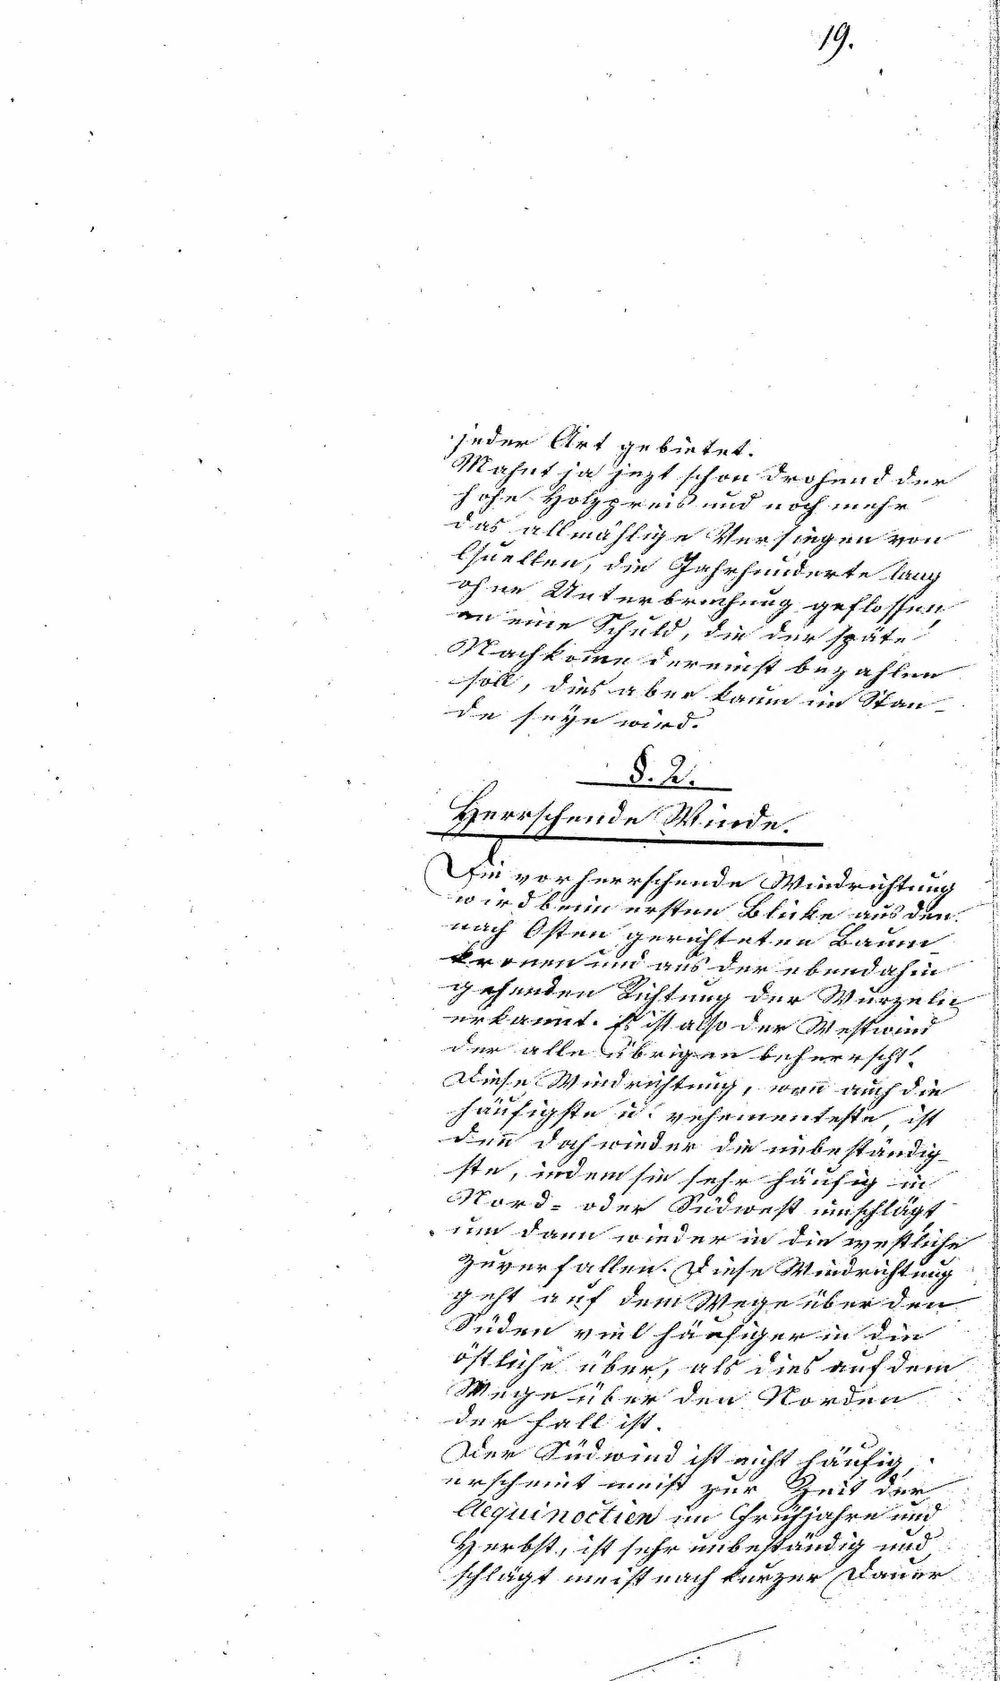 19.
jeder Art gebietet.
Mahnt ja jezt schon drohend der
hohe Holzpreis und noch mehr
das allmählige Versiegen von
Quellen, die Jahrhunderte lang
ohne Unterbrechung geflossen,
an eine Schuld, die der späte
Nachkom̅e dereinst bezahlen
soll, dies aber kaum im Stan-
de seyn wird.
§. 2.
Herrschende Winde.
Die vorherrschende Windrichtung
wird beim ersten Blicke aus den
nach Osten gerichteten Baum-
kronen und aus der ebendahin
gehenden Richtung der Wurzeln
erkannt. Es ist also der Westwind
der alle übrigen beherrscht.
Diese Windrichtung, wen̅ auch die
häufigste u. vehementeste, ist
den̅ doch wieder die unbeständig-
ste, indem sie sehr häufig in
Nord- oder Südwest umschlägt
um dann wieder in die westliche
zuverfallen. Diese Windrichtung
geht auf dem Wege über den
Süden viel häufiger in die
östliche über, als dies auf dem
Wege über den Norden
der Fall ist.
Der Südwind ist nicht häufig,
erscheint meist zur Zeit der
Aequinoctien im Frühjahre und
Herbst, ist sehr unbeständig und
schlägt meist nach kurzer Dauer